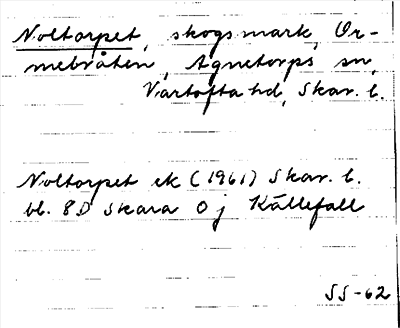 Noltorpet, skogsmark, Or-
mebråten, Agnetorps sn,
Vartofta hd, Skar. l.
Noltorpet ek (1961) Skar. l.
bl. 8D Skara 0 j Källefall
SS-62